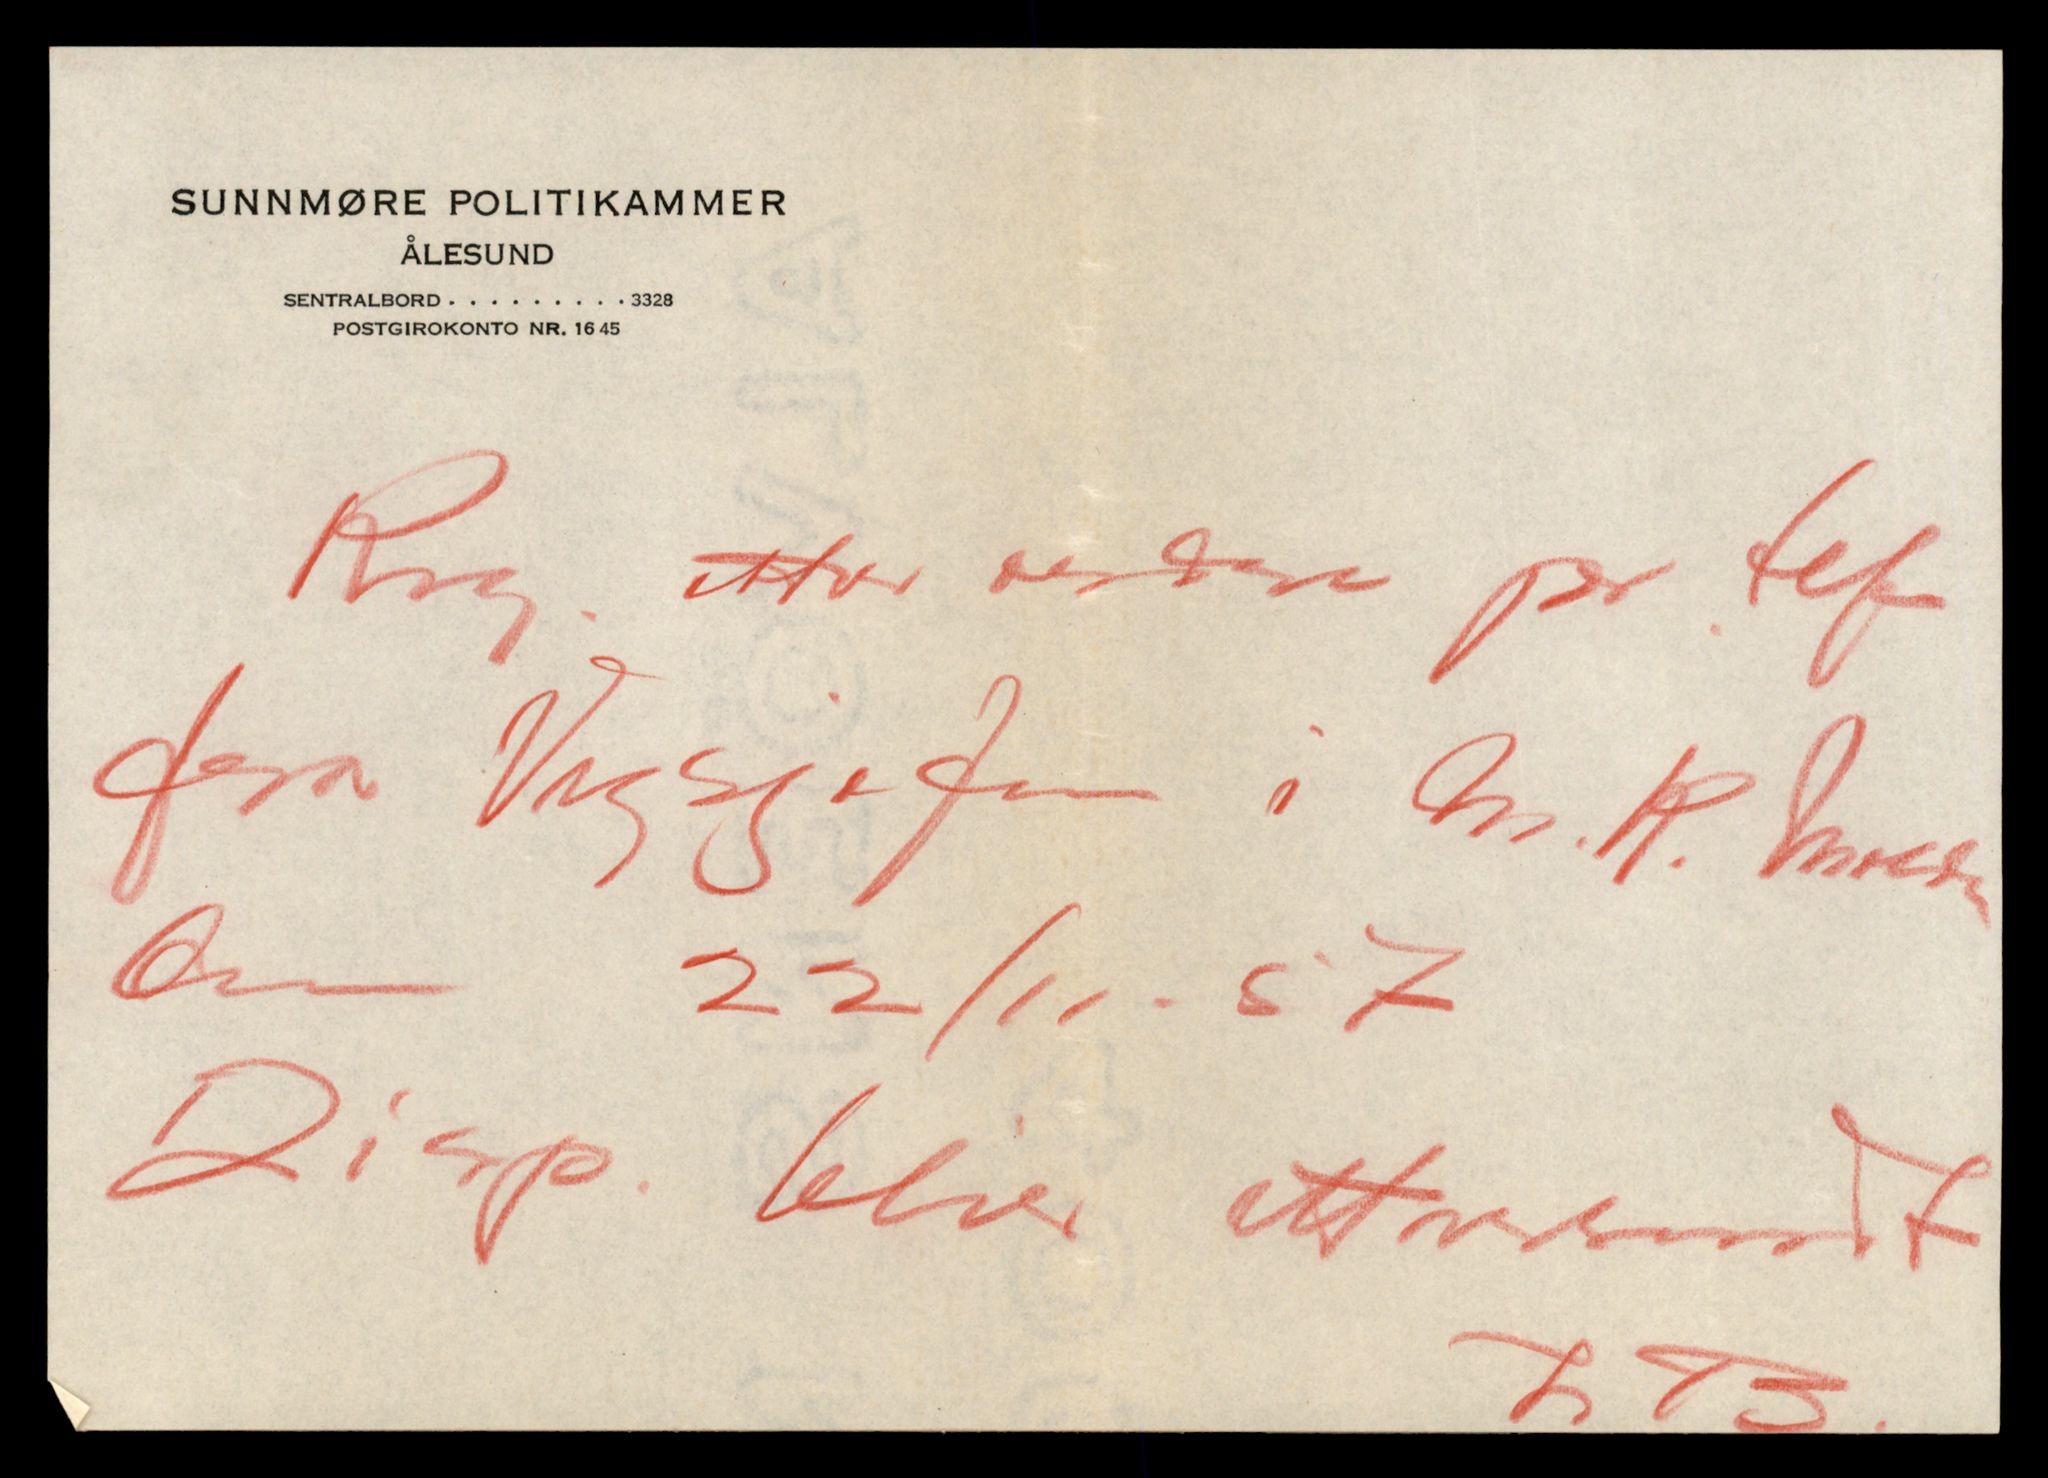 SUNNMØRE POLITIKAMMER
ÅLESUND
SENTRALBORD . . . . . . . . . 3328
POSTGIROKONTO NR. 1645
Reg. etter ordre pr. tlf
fra Vegsjefen i M. R.
den 22/11-57
Disp. blir ettersendt